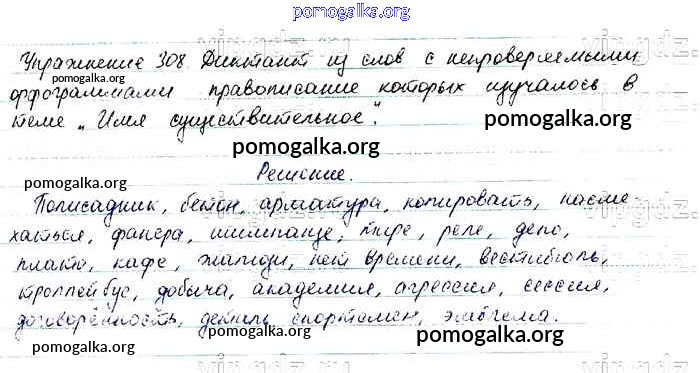 pomogalka.org
Упражнение 308. Диктант из слов с непроверяемыми
pomogalka.org
орфограммами правописание которых изучалось в
pomogalka.org
теме „Имя существительное".
pomogalka.org
Решение.
pomogalka.org
Полисадник, бетон, арматура, копировать, насме-
pomogalka.org
хаться, фанера, шимпанзе, пюре, реле, депо,
пальто, кафе, жалюзи, нет времени, вестибюль,
pomogalka.org pomogalka.org
троллейбус, добыча, академия, агрессия, сессия,
договорённость, деталь, спортсмен, эмблема.
pomogalka.org pomogalka.org